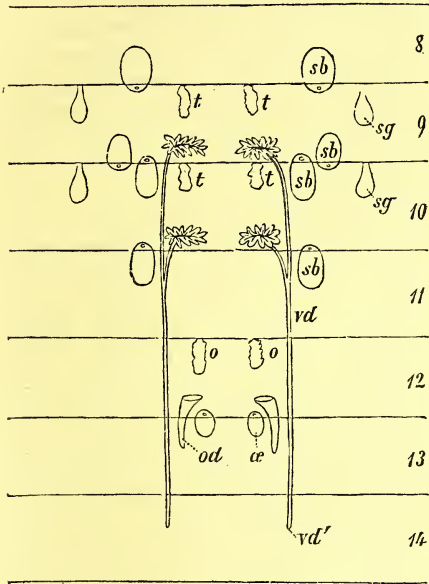 8
sb
t t
9
sg
sb
t t
sg
10
sb
11
vd
o o
12
od œ
13
vd'
14